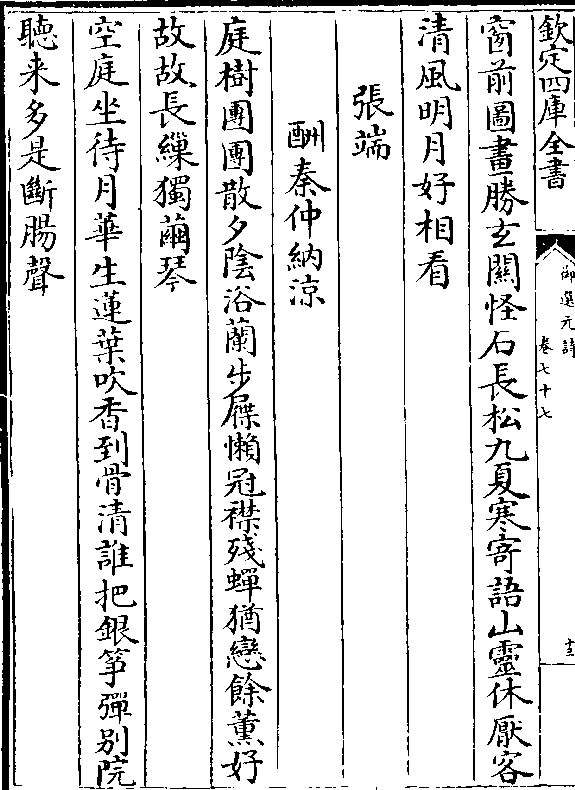 欽定四庫全書
御選元詩
卷七十七
十三
窗前圖畫勝玄關怪石長松九夏寒寄語山靈休厭客
清風明月好相看
張端
酬秦仲納涼
庭樹團團散夕陰浴蘭步屧懶冠襟殘蟬猶戀餘薰好
故故長繅獨繭琴
空庭坐待月華生蓮葉吹香到骨清誰把銀箏彈別院
聽来多是斷腸聲